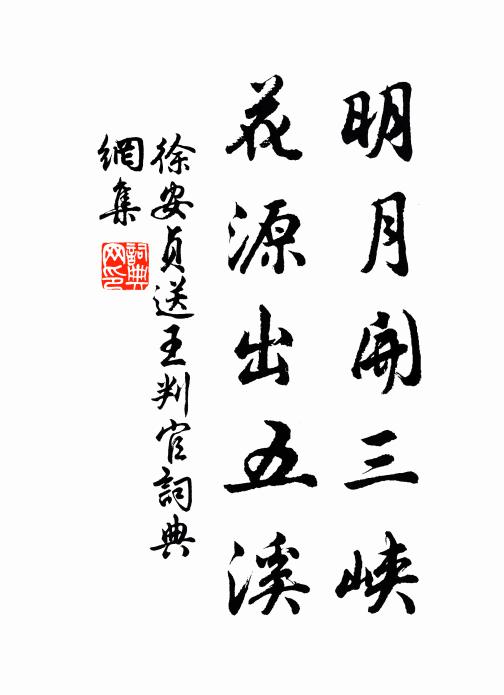 明月開三峽
花源出五溪
徐安貞送王判官詞典
網集
詞典
网印